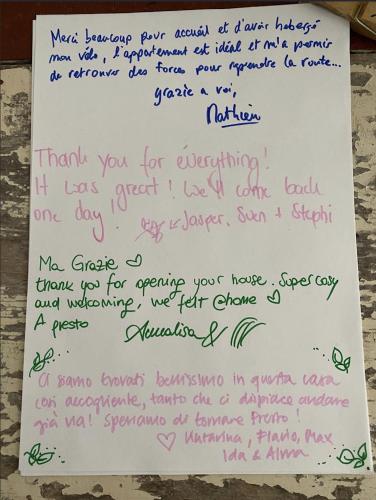 Merci beaucoup pour accueil et d'avoir hebergé
mon vélo, l'appartement est idéal et m'a permis
de retrouver des forces pour reprendre la route...
grazie a voi,
Mathieu
Thank you for everything!
It was great! We'll come back
one day!
Jasper, Sven + Stephi
Ma Grazie ♡
thank you for opening your house. Super cosy
and welcoming, we felt @home ♡
A presto
Annalisa &
Ci siamo trovati benissimo in questa casa
così accogliente, tanto che ci dispiace andare
già via! Speriamo di tornare Presto!
♡ Katarina, Flavio, Max
Ida & Alma